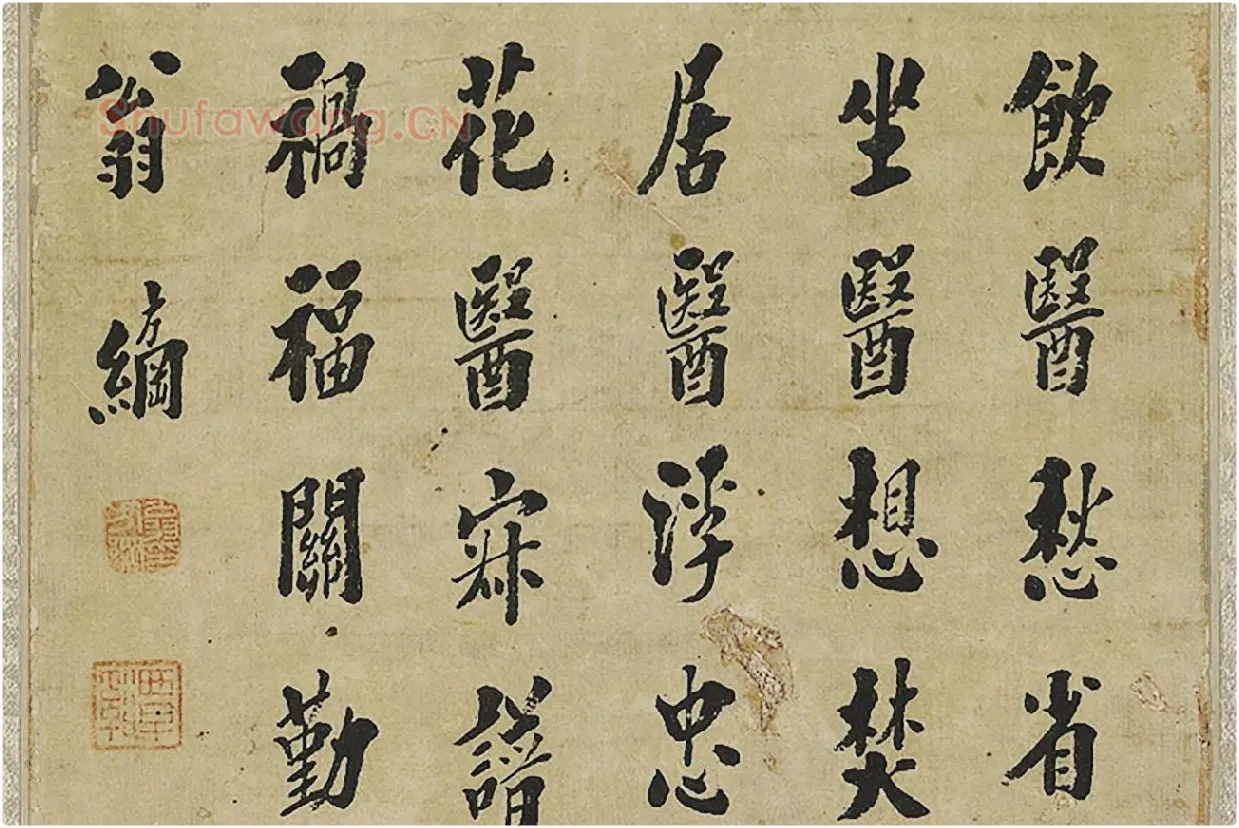 飲醫愁省
坐醫想焚
居醫浮忠
花醫寂
禍福關勤
翁方綱
Shufawang.CN